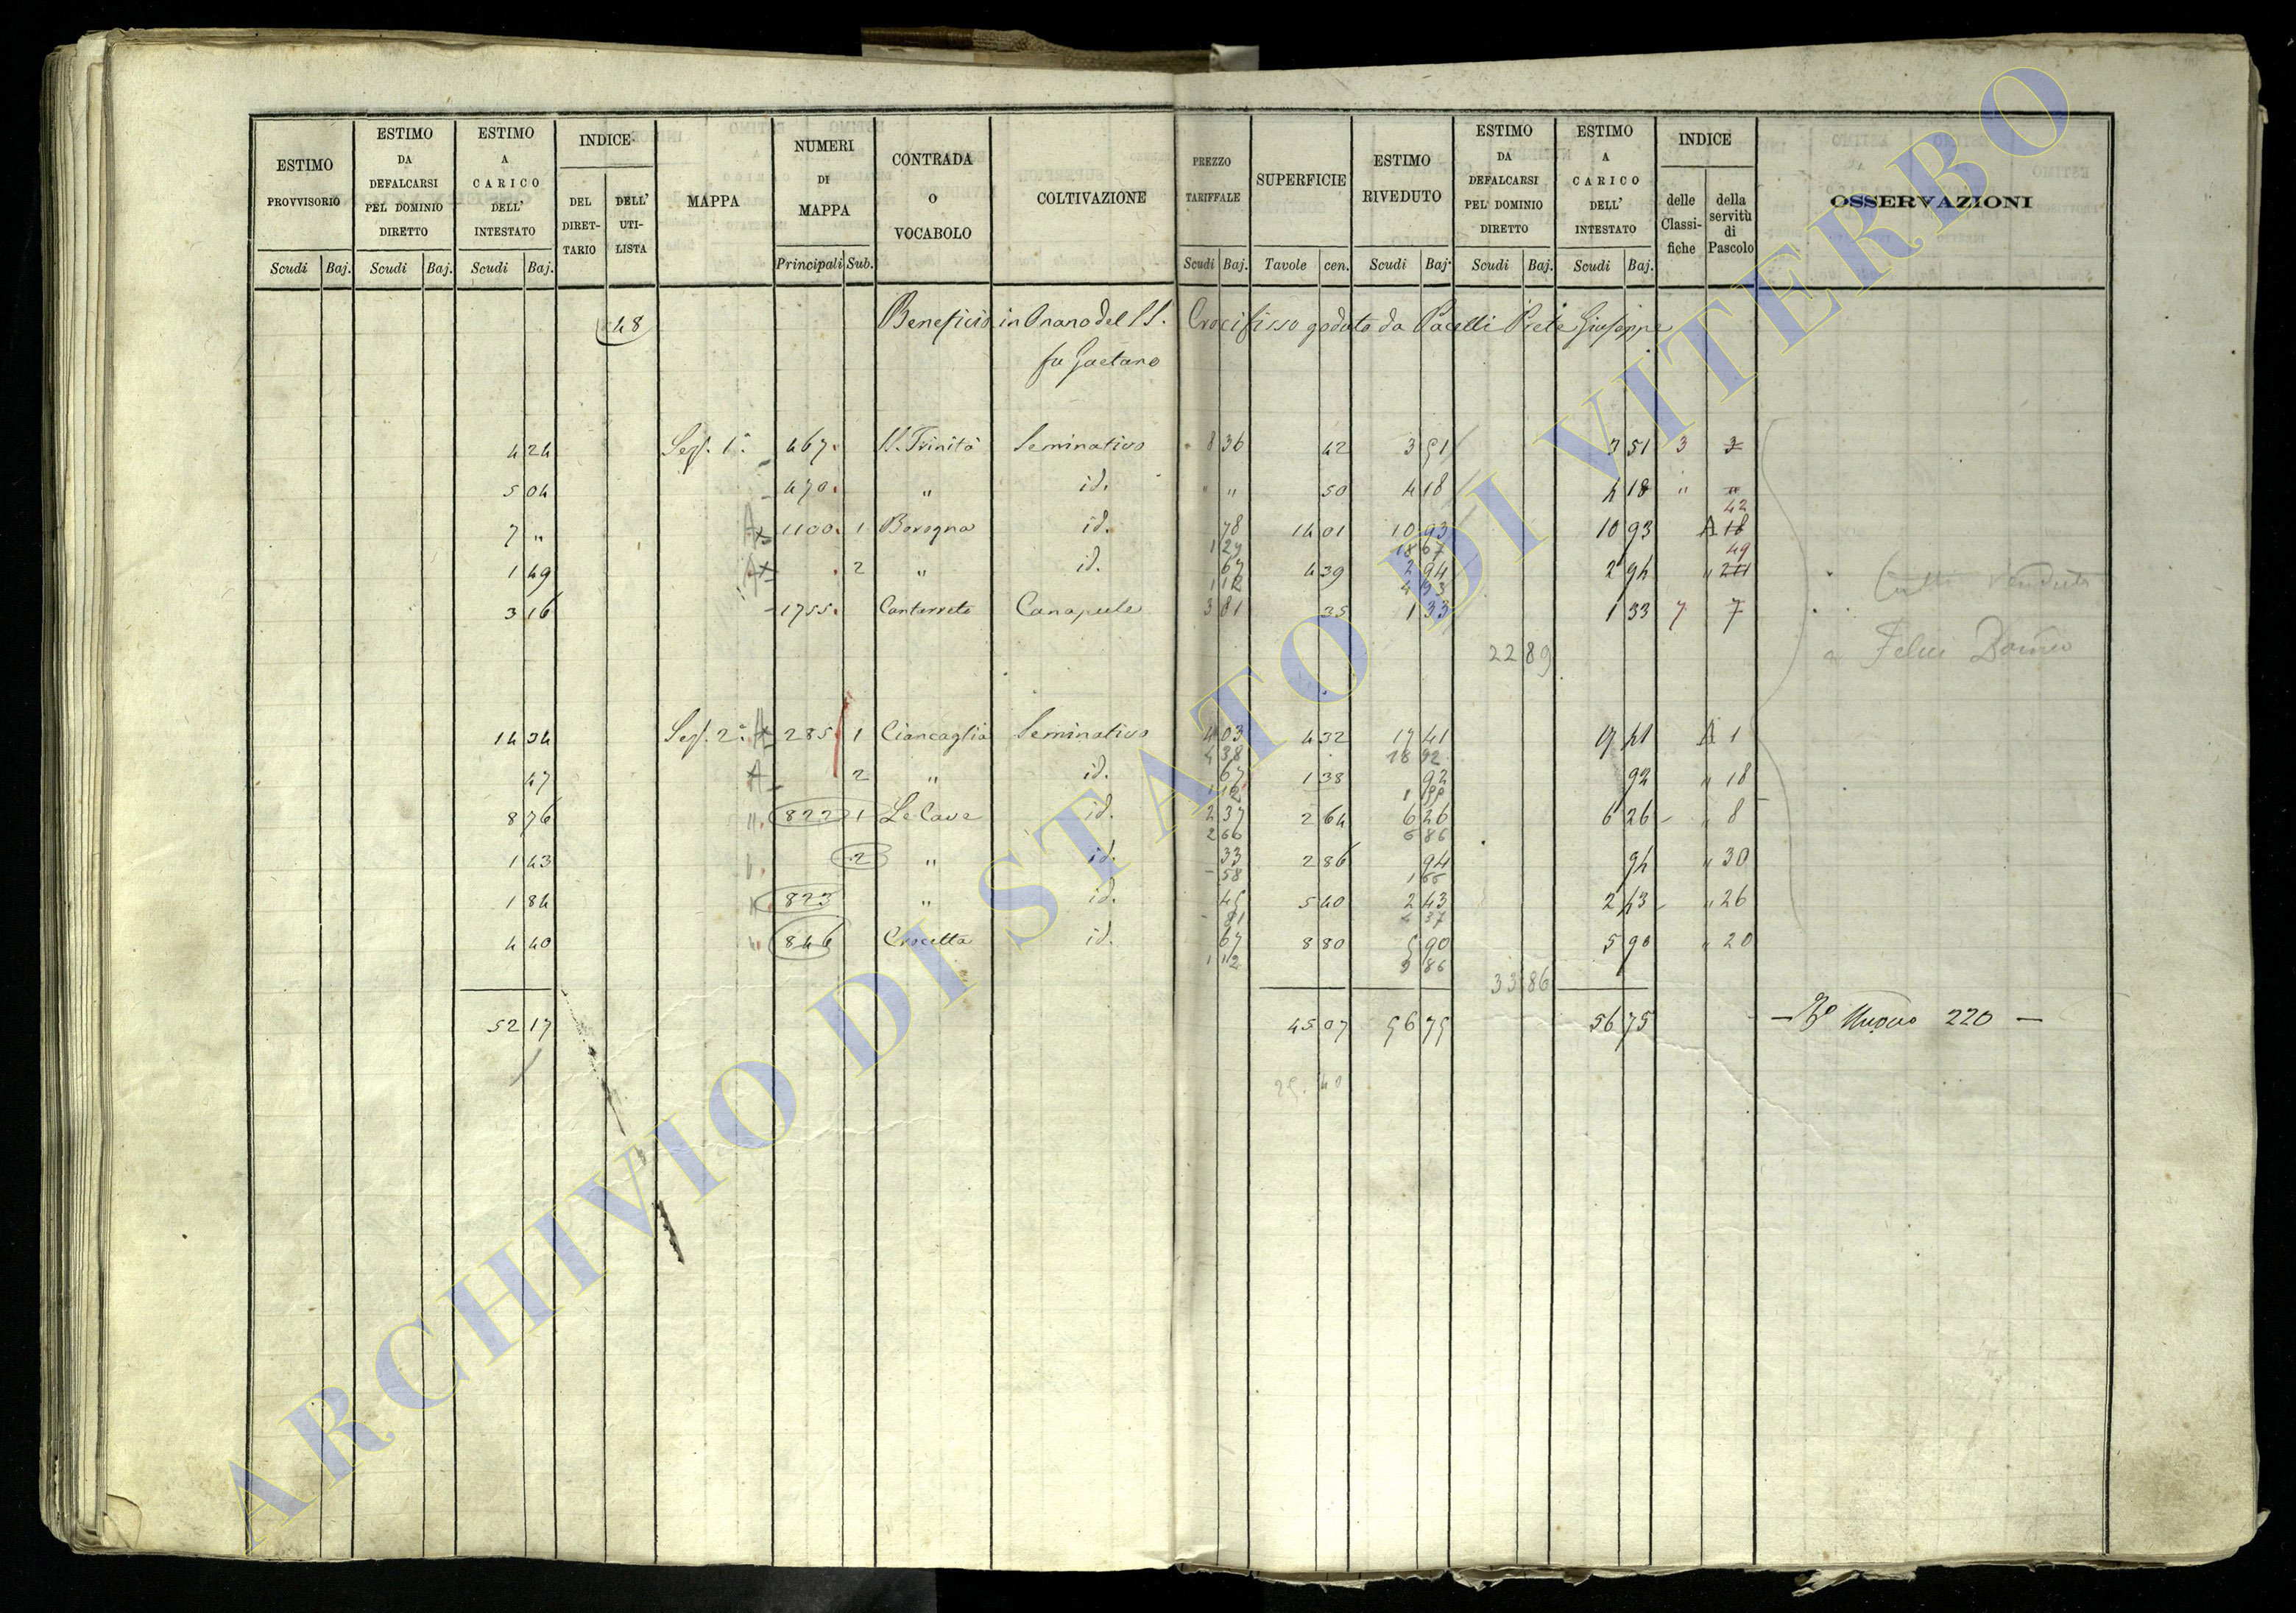 ESTIMO PROVVISORIO | ESTIMO DA DEFALCARSI PEL DOMINIO DIRETTO | ESTIMO A CARICO DELL' INTESTATO | INDICE DEL DIRETTARIO | DELL' UTILISTA | MAPPA | NUMERI DI MAPPA | CONTRADA O VOCABOLO | COLTIVAZIONE | PREZZO TARIFFALE | SUPERFICIE | ESTIMO RIVEDUTO | ESTIMO DA DEFALCARSI PEL DOMINIO DIRETTO | ESTIMO A CARICO DELL' INTESTATO | INDICE delle Classifiche | della servitù di Pascolo | OSSERVAZIONI
Scudi Baj. | Scudi Baj. | Scudi Baj. | Principali Sub. | Scudi Baj. | Tavole cen. | Scudi Baj. | Scudi Baj. | Scudi Baj.
48 Beneficio in Onano del SS. Crocifisso goduto da Pacelli Prete Giuseppe
fu Gaetano
4 24 Sez. 1ª 467. SS. Trinità Seminativo 8 36 42 3 51 3 51 3 3
5 04 470. " id. " " 50 4 18 4 18 " "
42
7 " 1100. 1 Bovogna id. 78 14 01 10 93 10 93 A 18
1 29 18 67 49
1 49 2 " id. 67 4 39 2 94 2 94 "
1 12
3 16 1755. Cantarreto Canapule 3 81 35 1 33 1 33 7 7
22 89
a Felici
14 34 Sez. 2ª A 285 1 Ciancaglia Seminativo 4 03 4 32 17 41 17 41 A 1
4 38 18 92
47 A 2 " id. 67 1 38 92 92 " 18
1 12
8 76 " 822 1 Le Cave id. 2 37 2 64 6 26 6 26 " 8
2 66 6 86
1 43 2 " id. 33 2 86 94 94 " 30
58 1 66
1 84 823 " id. 45 5 40 2 43 2 43 " 26
81 4 37
4 40 " 846 Crocetta id. 67 8 80 5 90 5 90 " 20
1 12 9 86
33 86
52 17 45 07 56 75 56 75 Nuovo 220
25. 40
ARCHIVIO DI STATO DI VITERBO